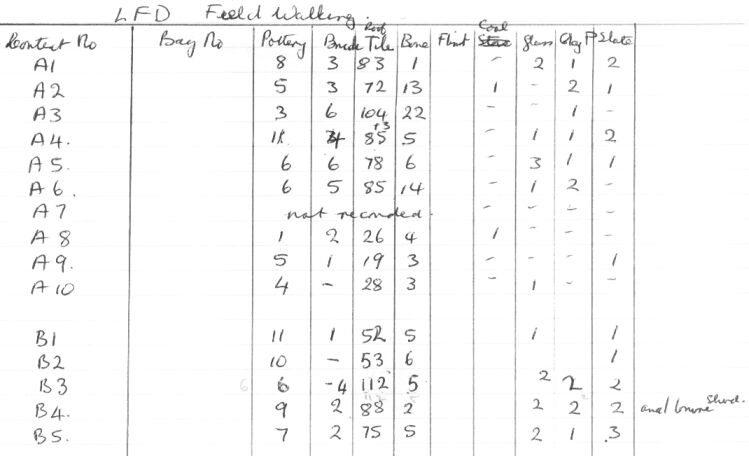 LFD Field Walking.
Context No Bag No Pottery Brick Roof Tile Bone Flint Coal Glass Clay P Slate
A1 8 3 83 1 - 2 1 2
A2 5 3 72 13 1 - 2 1
A3 3 6 104 22 - - 1 -
A4. 11 4 85 +3 5 - 1 1 2
A5. 6 6 78 6 - 3 1 1
A6. 6 5 85 14 - 1 2 -
A7 not recorded. - - - -
A8 1 2 26 4 1 - - -
A9. 5 1 19 3 - - - 1
A10 4 - 28 3 - 1 - -
B1 11 1 52 5 1 1
B2 10 - 53 6 1
B3 6 6 -4 112 5 2 2 2
B4. 9 2 88 2 2 2 2 and 1 more Sherd.
B5. 7 2 75 5 2 1 3